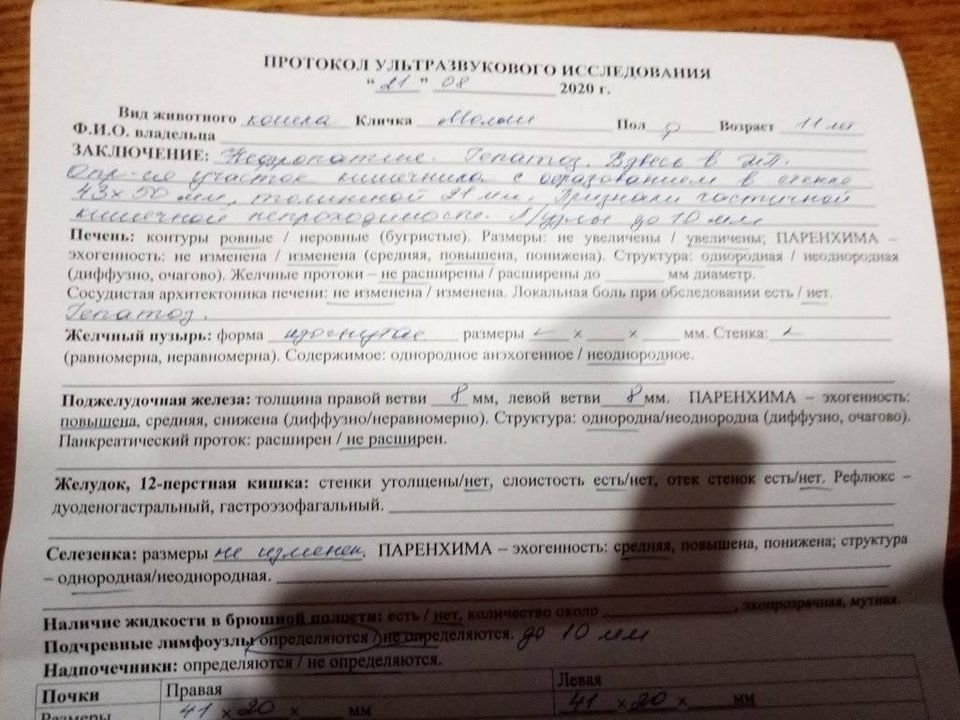 ПРОТОКОЛ УЛЬТРАЗВУКОВОГО ИССЛЕДОВАНИЯ
“ 21 ” 08 2020 г.
Вид животного кошка Кличка Пол ♀ Возраст 11 лет
Ф.И.О. владельца
ЗАКЛЮЧЕНИЕ: Нефропатия. Гепатоз. Взвесь в МП.
Опр-ся участок кишечника с образованием в стенке
43х50 мм, толщиной 21 мм. Признаки частичной
кишечной непроходимости. Л/узлы до 10 мм
Печень: контуры ровные / неровные (бугристые). Размеры: не увеличены / увеличены; ПАРЕНХИМА –
эхогенность: не изменена / изменена (средняя, повышена, понижена). Структура: однородная / неоднородная
(диффузно, очагово). Желчные протоки – не расширены / расширены до ______ мм диаметр.
Сосудистая архитектоника печени: не изменена / изменена. Локальная боль при обследовании есть / нет.
Гепатоз.
Желчный пузырь: форма изогнутая размеры – × ___ × ___ мм. Стенка:
(равномерна, неравномерна). Содержимое: однородное анэхогенное / неоднородное.
Поджелудочная железа: толщина правой ветви 8 мм, левой ветви 8 мм. ПАРЕНХИМА – эхогенность:
повышена, средняя, снижена (диффузно/неравномерно). Структура: однородна/неоднородна (диффузно, очагово).
Панкреатический проток: расширен / не расширен.
Желудок, 12-перстная кишка: стенки утолщены/нет, слоистость есть/нет, отек стенок есть/нет. Рефлюкс –
дуоденогастральный, гастроэзофагальный.
Селезенка: размеры не изменен. ПАРЕНХИМА – эхогенность: средняя, повышена, понижена; структура
– однородная/неоднородная.
Наличие жидкости в брюшной полости: есть / нет, количество около ____________, эхопрозрачная, мутная.
Подчревные лимфоузлы определяются / не определяются. до 10 мм
Надпочечники: определяются / не определяются.
Почки Правая Левая
Размеры 41 × 20 × ___ мм 41 × 20 × ___ мм